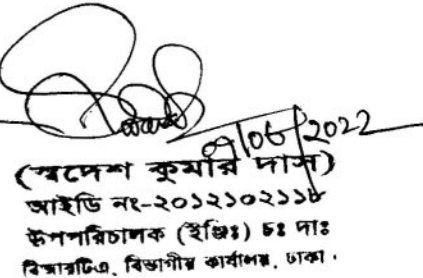 07/06/2022
(স্বদেশ কুমার দাস)
আইডি নং-২০১২১০২১১৮
উপপরিচালক (ইঞ্জিঃ) চঃ দাঃ
বিআরটিএ, বিভাগীয় কার্যালয়, ঢাকা।